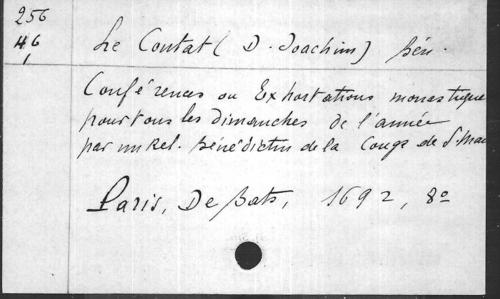 256
46
1
Le Contat (D. Joachim) bén.
Conférences ou Exhortations monastiques
pour tous les dimanches de l'année
par un Rel. bénédictin de la Congr de S. Mau
Paris, De Bats, 1692, 8o